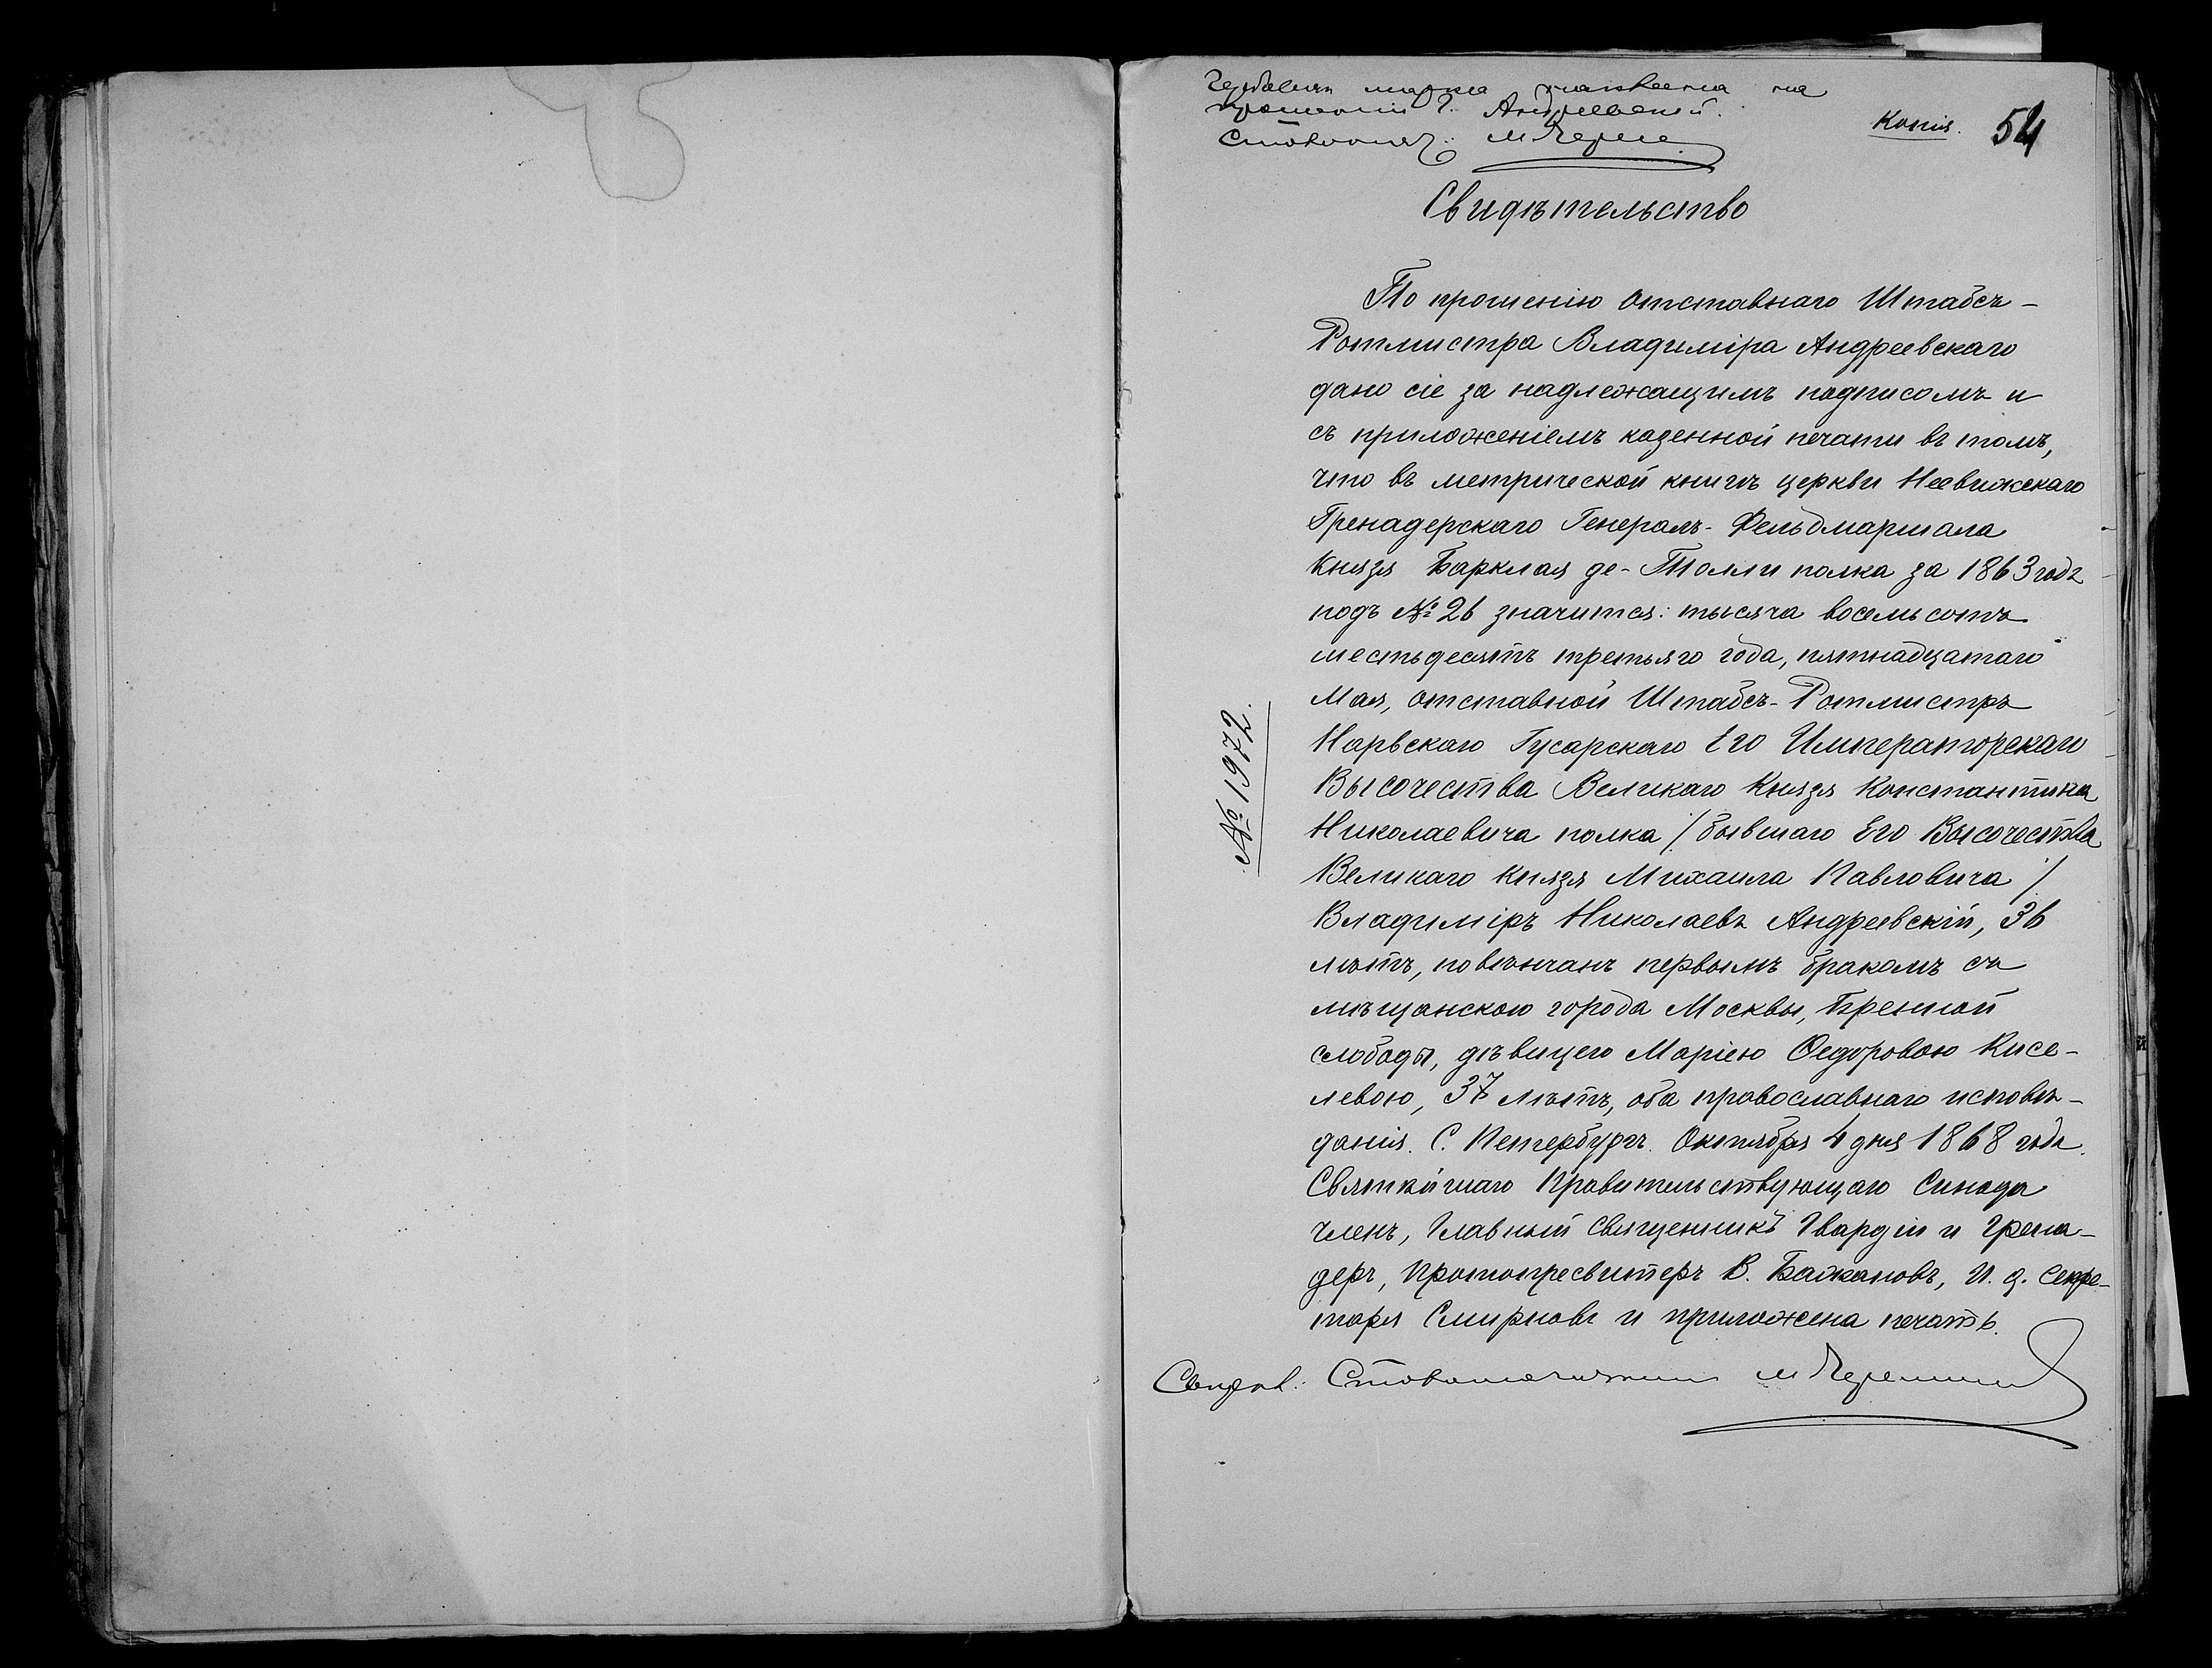 Гербовая марка наклеена на
прошеніи г. Андреевской.
Копія. 54
Свидѣтельство
По прошенію отставнаго Штабсъ-
Ротмистра Владиміра Андреевскаго
дано сіе за надлежащимъ подписомъ и
съ приложеніемъ казенной печати въ томъ,
что въ метрической книгѣ церкви Несвижскаго
Гренадерскаго Генералъ-Фельдмаршала
Князя Барклая де-Толли полка за 1863 годъ
подъ № 26 значится: тысяча восемьсотъ
шестьдесятъ третьяго года, пятнадцатаго
Мая, отставной Штабсъ-Ротмистръ
Нарвскаго Гусарскаго Его Императорскаго
Высочества Великаго Князя Константина
Николаевича полка / бывшаго Его Высочества
Великаго Князя Михаила Павловича /
Владиміръ Николаевъ Андреевскій, 36
лѣтъ, повѣнчанъ первымъ бракомъ съ
мѣщанскою города Москвы,
слободы, дѣвицею Маріею Ѳедоровою Кисе-
левою, 37 лѣтъ, оба православнаго исповѣ-
данія. С. Петербургъ. Октября 4 дня 1868 года.
Святѣйшаго Правительствующаго Синода
членъ, Главный Священникъ Гвардіи и Грена-
деръ, Протопресвитеръ В. Бажановъ, И. д. Секре-
таря Смирновъ и приложена печать.
№ 1972.